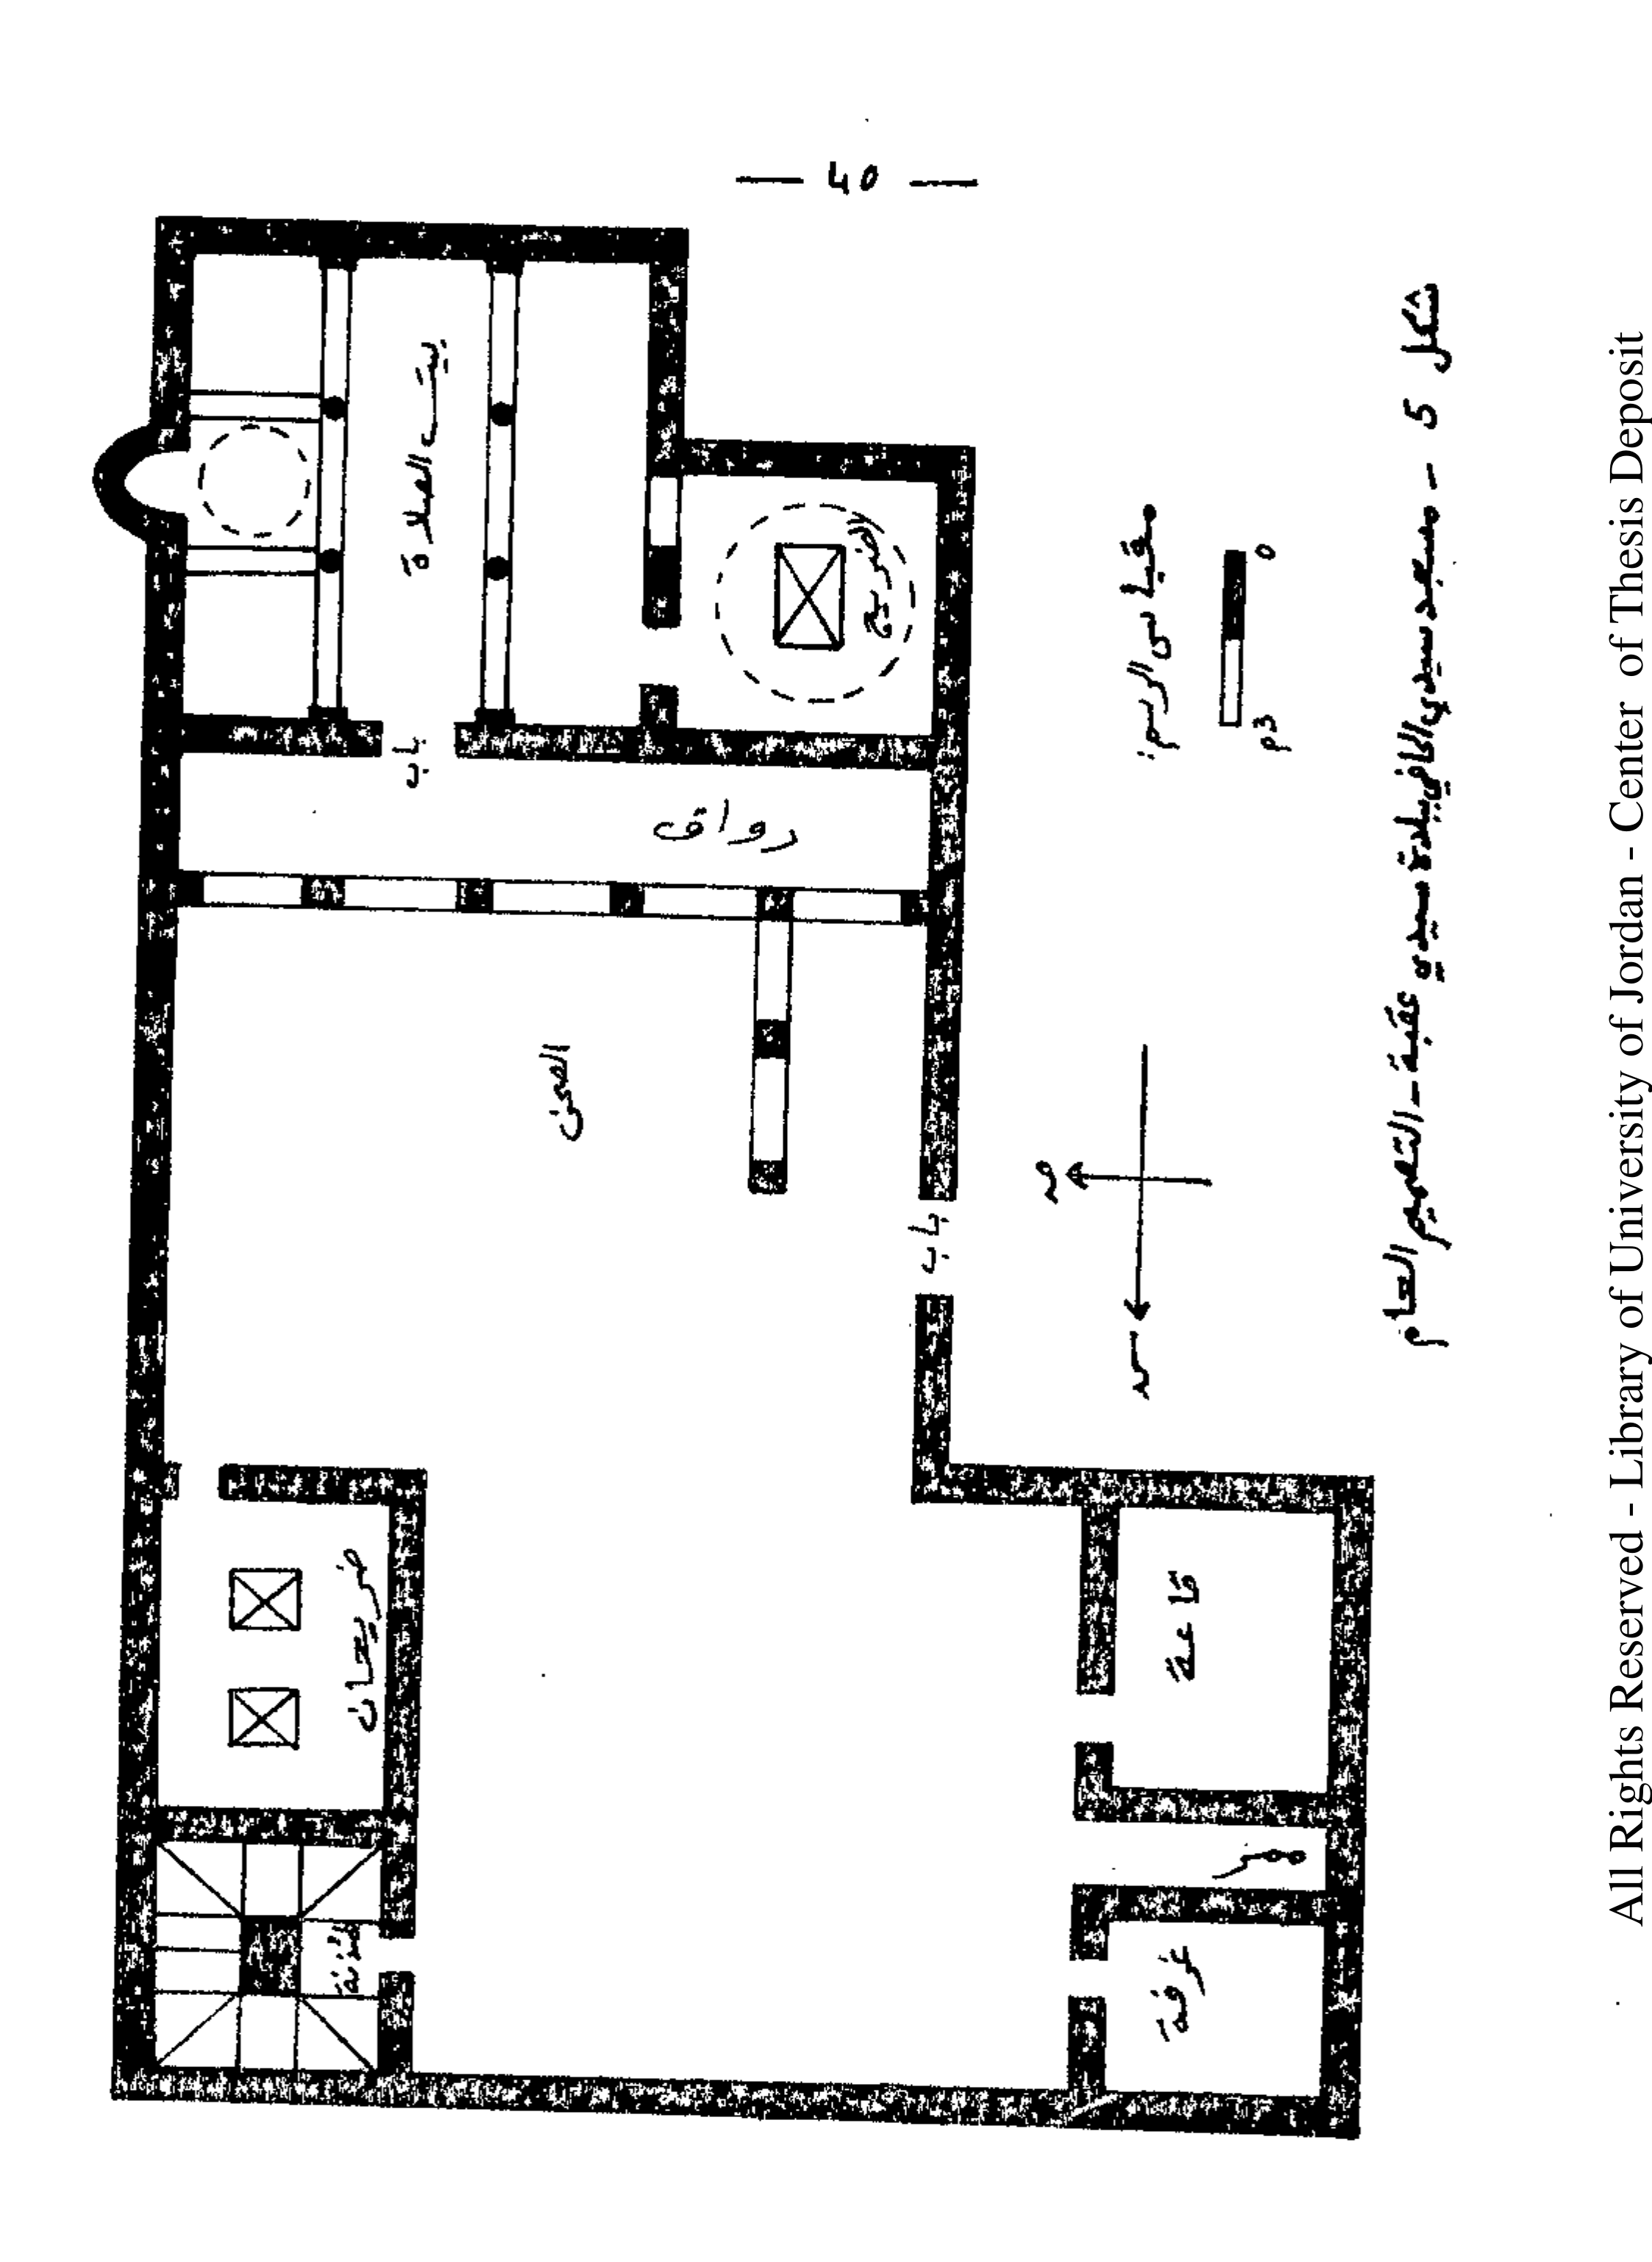 — 40 —
بيت الصلاة
الضريح
باب
رواق
الصحن
باب
ضريحان
المئذنة
قاعة
غرفة
مقياس الرسم:
0
3م
شكل 5 - مسجد سيدي الحافي ببلدة سيدي عقبة - التصميم العام
All Rights Reserved - Library of University of Jordan - Center of Thesis Deposit